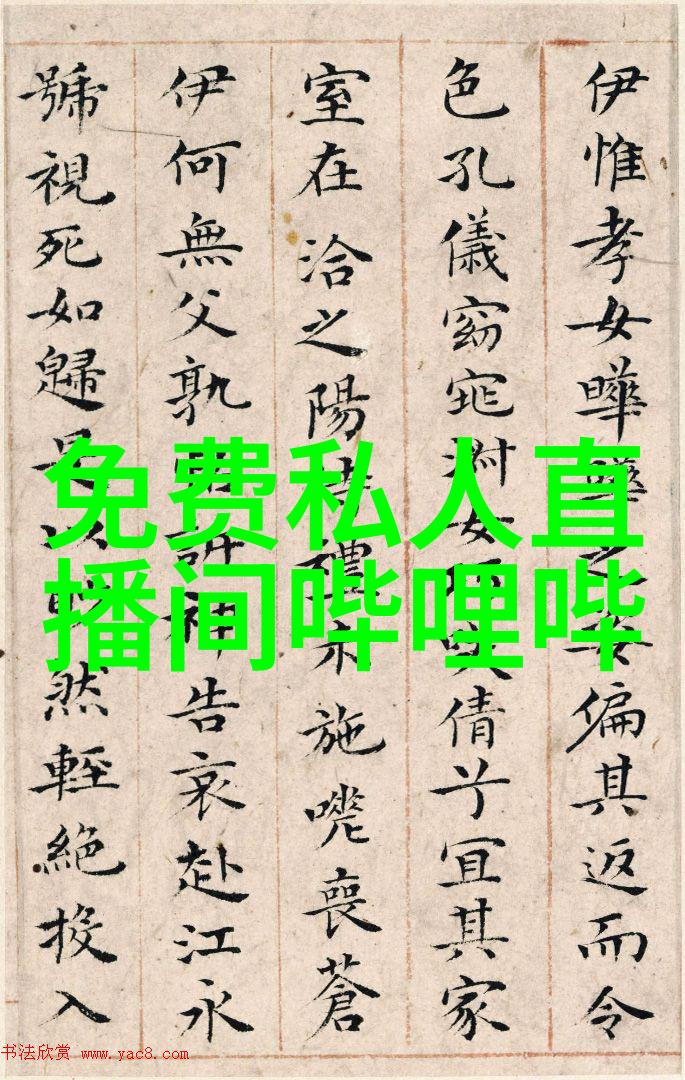 伊惟孝女曄曄之姿偏其返而令
色孔儀窈窕淑女笑倩兮宜其家
室在洽之陽待禮未施嗟喪蒼
伊何無父孰訴神告哀赴江永
號視死如歸是以然輕絕投入
免费私人直
播间哔哩哔
书法欣赏 www.yac8.com